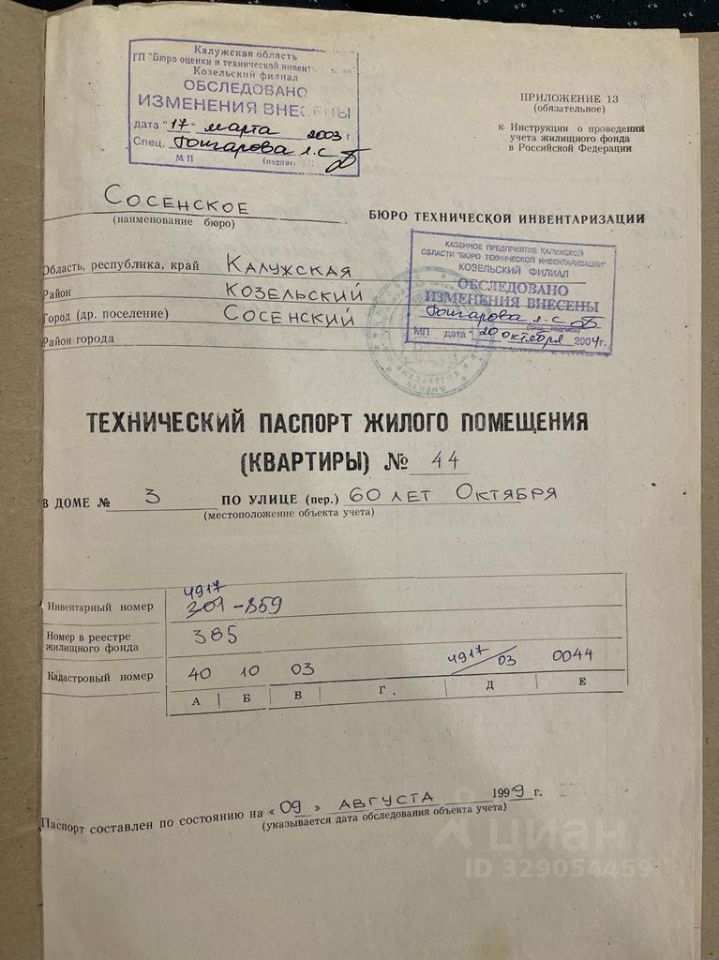 Калужская область
ГП "Бюро оценки и технической инвент
Козельский филиал
ОБСЛЕДОВАНО
ИЗМЕНЕНИЯ ВНЕСЕНЫ
дата "17" марта 2003 г
Спец. Гончарова Л.С
МП (подпись
ПРИЛОЖЕНИЕ 13
(обязательное)
к Инструкции о проведении
учета жилищного фонда
в Российской Федерации
СОСЕНСКОЕ БЮРО ТЕХНИЧЕСКОЙ ИНВЕНТАРИЗАЦИИ
(наименование бюро)
КАЗЕННОЕ ПРЕДПРИЯТИЕ КАЛУЖСКОЙ
ОБЛАСТИ "БЮРО ТЕХНИЧЕСКОЙ ИНВЕНТАРИЗАЦИИ"
КОЗЕЛЬСКИЙ ФИЛИАЛ
ОБСЛЕДОВАНО
ИЗМЕНЕНИЯ ВНЕСЕНЫ
Гончарова Л.С
МП дата "20 октября 2004г.
Область, республика, край КАЛУЖСКАЯ
Район КОЗЕЛЬСКИЙ
Город (др. поселение) СОСЕНСКИЙ
Район города
ТЕХНИЧЕСКИЙ ПАСПОРТ ЖИЛОГО ПОМЕЩЕНИЯ
(КВАРТИРЫ) № 44
В ДОМЕ № 3 ПО УЛИЦЕ (пер.) 60 ЛЕТ ОКТЯБРЯ
(местоположение объекта учета)
4917
Инвентарный номер 301-859
Номер в реестре
жилищного фонда 385
Кадастровый номер 40 10 03 4917/03 0044
А Б В Г. Д Е
Паспорт составлен по состоянию на «09» АВГУСТА 1999 г.
(указывается дата обследования объекта учета)
циан
ID 329054459